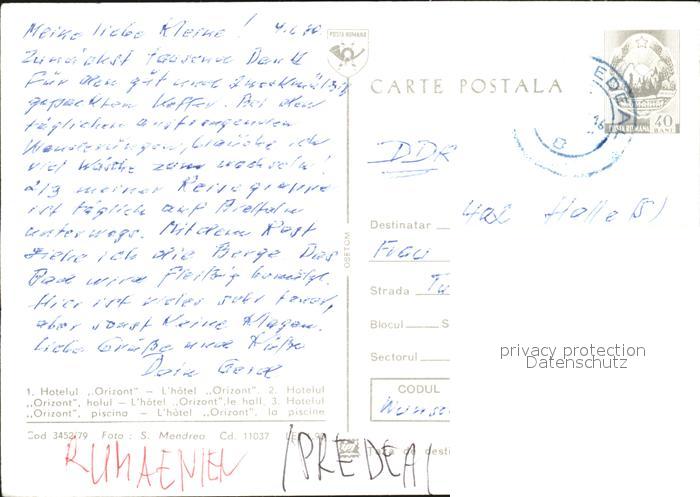 Meine liebe Kleine! 4.6.80
Zunächst tausend Dank
für den gut und zweckmäßig
gepackten Koffer. Bei den
täglichen anstrengenden
Wanderungen, brauche ich
viel Wäsche zum wechseln!
2/3 meiner Reisegruppe
ist täglich auf
unterwegs. Mit dem Rest
ziehe ich die Berge Das
Bad wird fleißig benützt.
Hier ist vieles sehr teuer,
aber sonst keine Klagen.
Liebe Grüße und Küße
Dein Gerd
1. Hotelul „Orizont" – L'hôtel „Orizont". 2. Hotelul
„Orizont", holul – L'hôtel „Orizont", le hall, 3. Hotelul
„Orizont", piscina – L'hôtel „Orizont", la piscine
Cod 3452/79 Foto: S. Mendrea Cd. 11037
RUMAENIEN /PREDEAL
POSTA ROMANA
OSETCM
CARTE POSTALA
PREDEAL
POSTA ROMANA 40 BANI
DDR
402 Halle (S)
Destinatar
Frau
Strada Tu
Blocul S
Sectorul
CODUL
Wunsc
Taxa de desti
privacy protection
Datenschutz